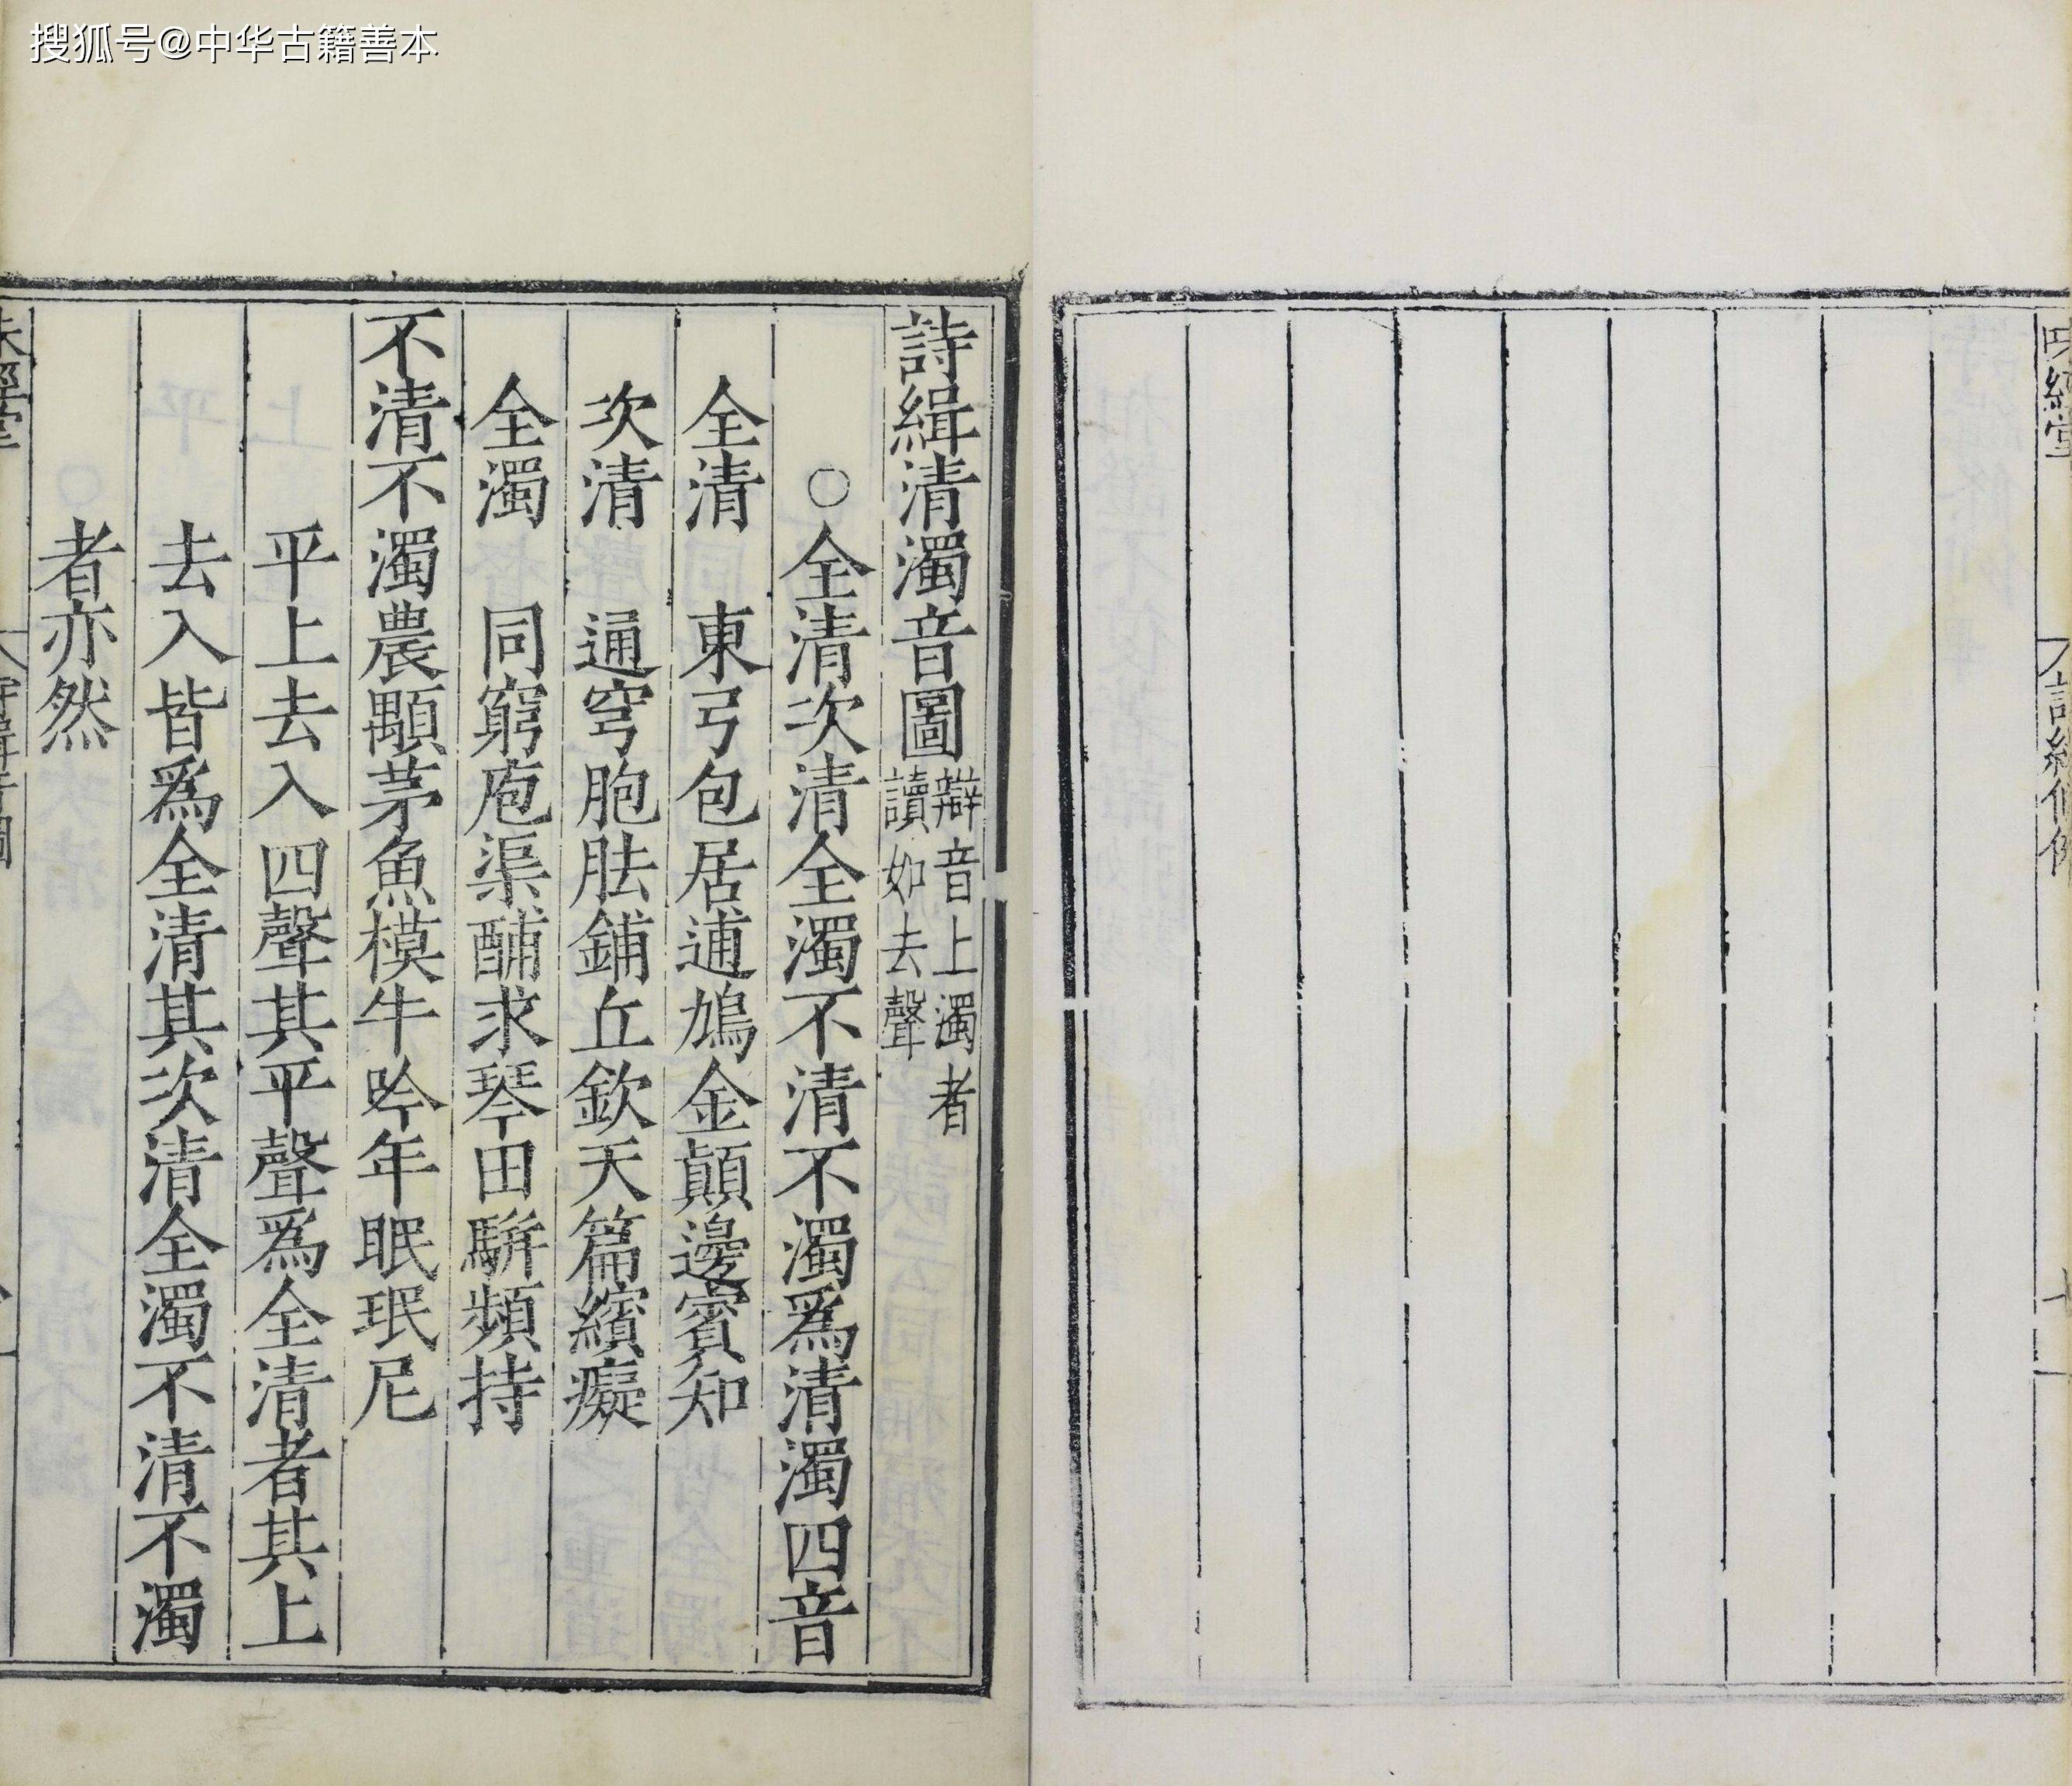 搜狐号@中华古籍善本
詩緝清濁音圖
辯音上濁者
讀如去聲
○全清次清全濁不清不濁爲清濁四音
全清　東弓包居逋鳩金顚邊賓知
次清　通穹胞胠鋪丘欽天篇繽癡
全濁　同窮庖渠酺求琴田駢頻持
不清不濁農顒茅魚模牛吟年眠珉尼
平上去入四聲其平聲爲全清者其上
去入皆爲全清其次清全濁不清不濁
者亦然